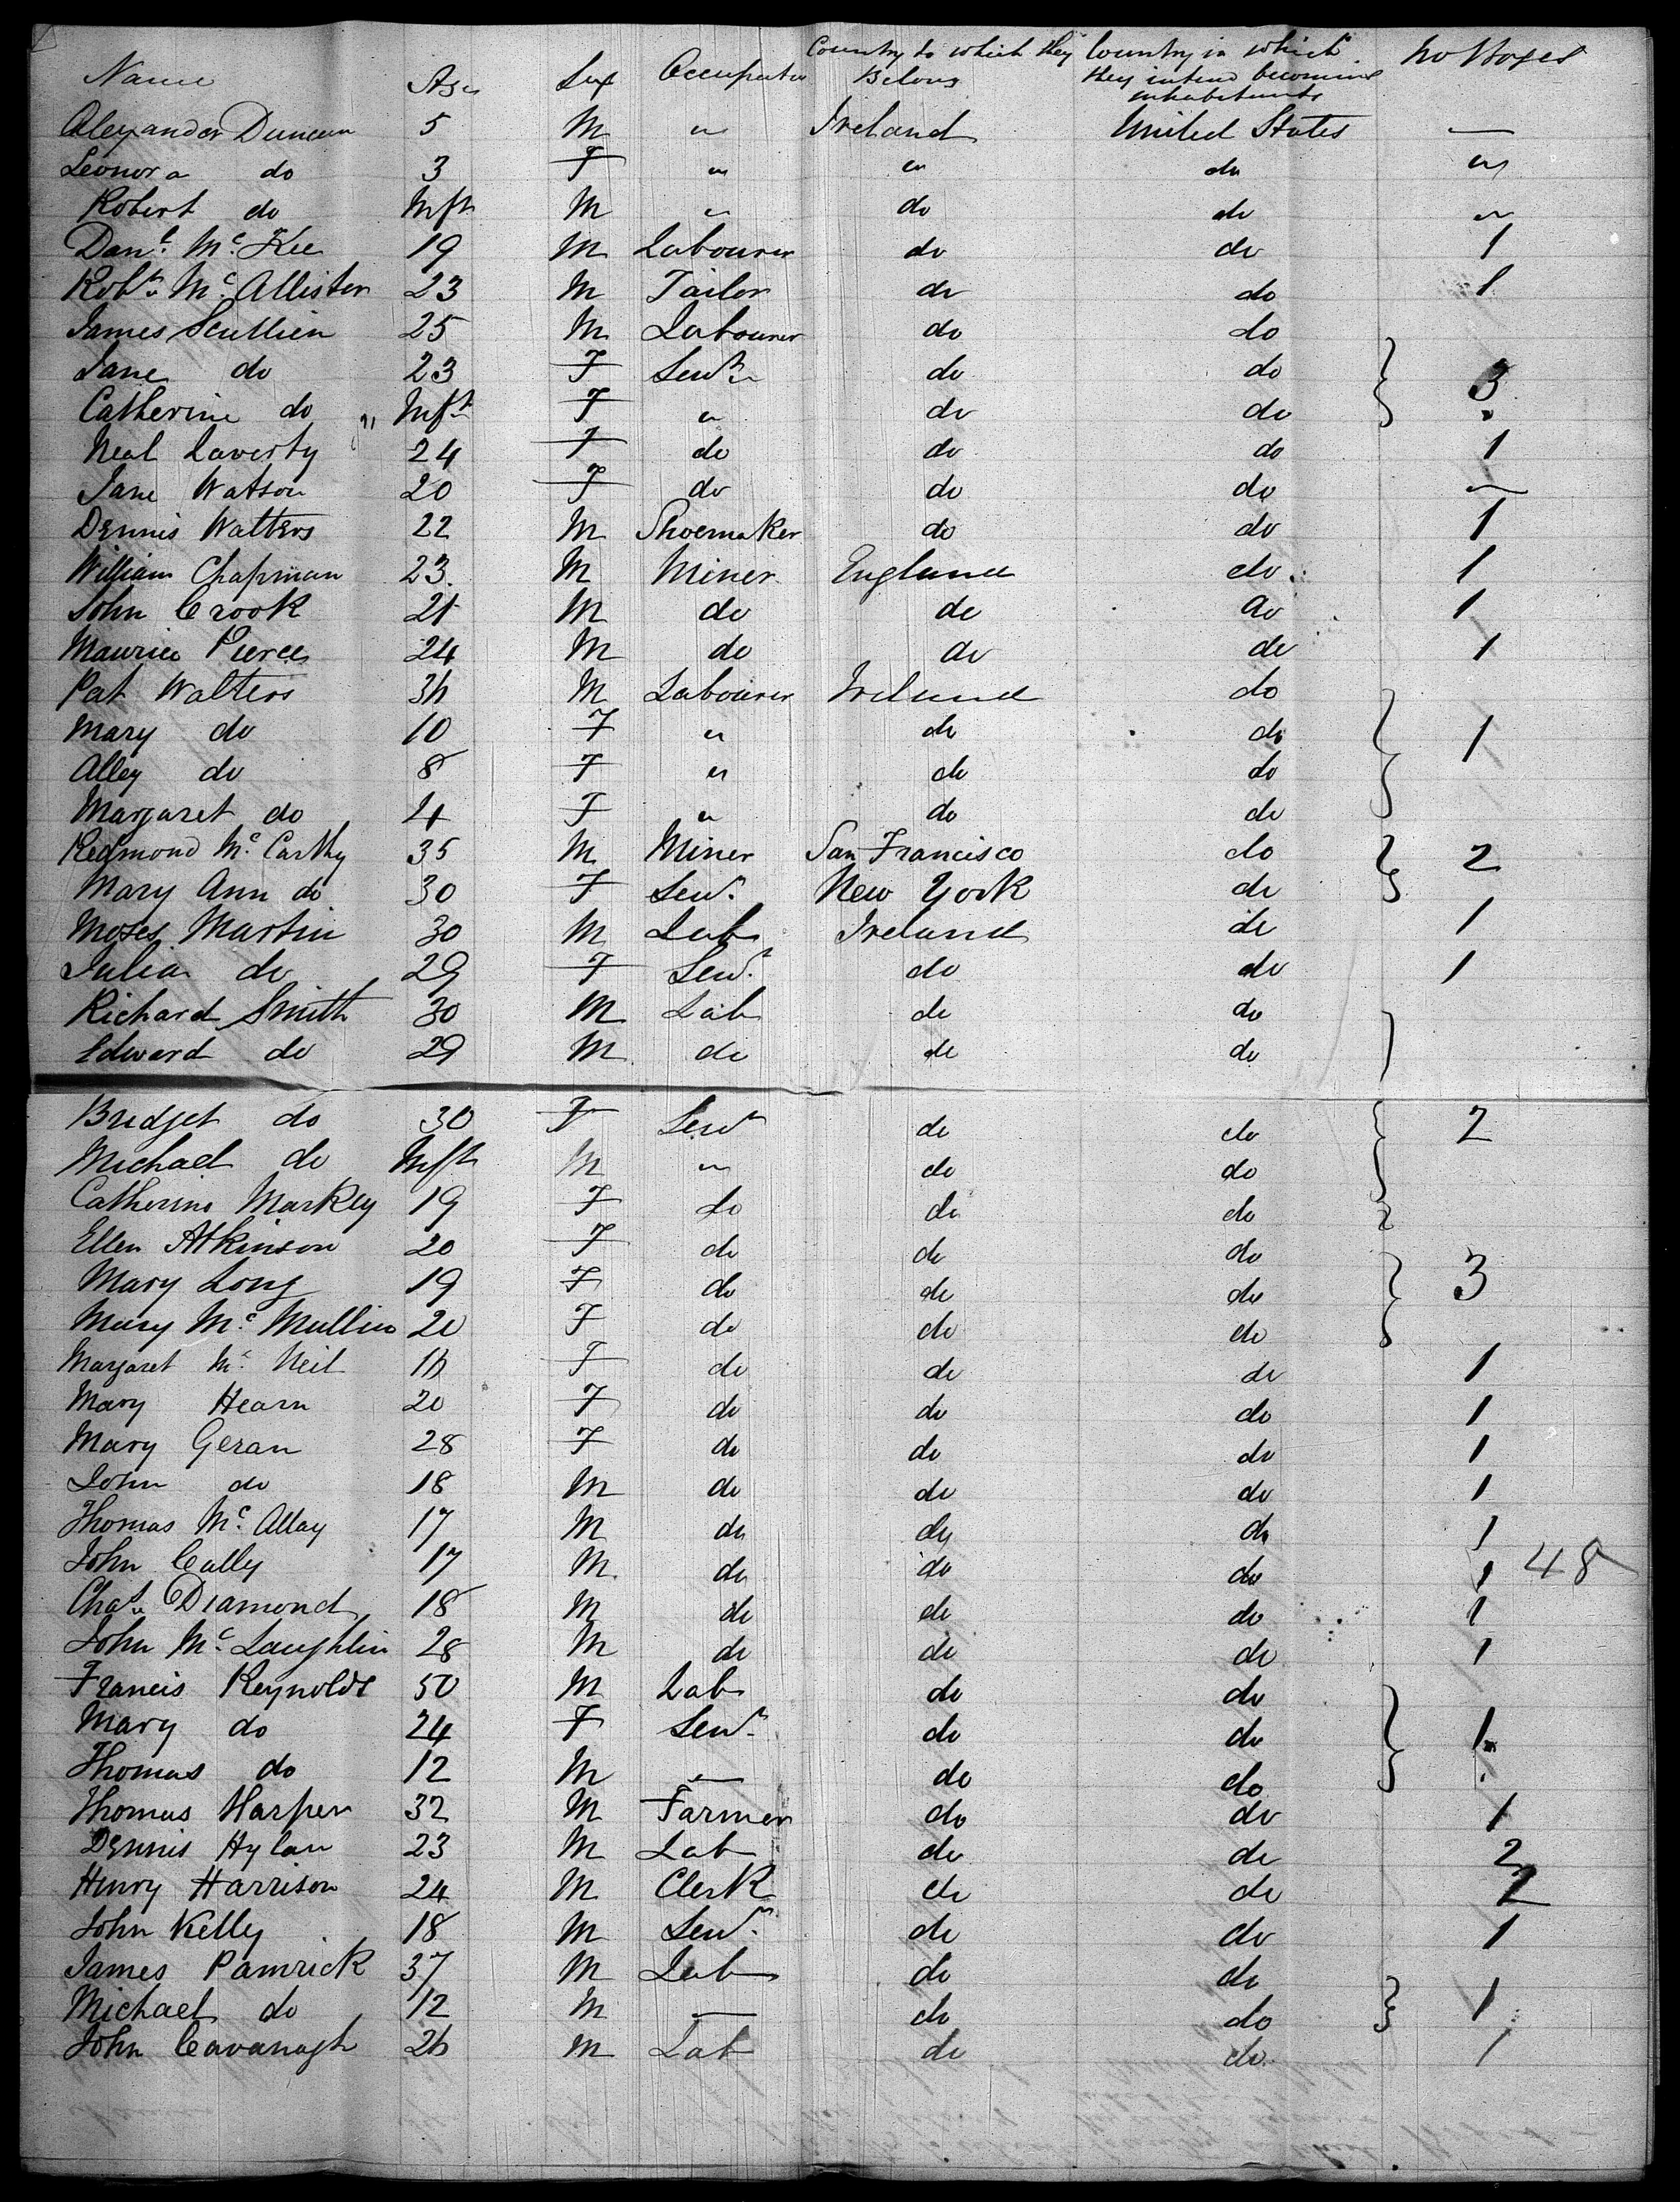 Name Age Sex Occupation Country to which they Belong Country in which they intend becoming inhabitants No Boxes
Alexander Duncan 5 M " Ireland United States —
Leonora do 3 F " " do "
Robert do Inft M " do do "
Danl. Mc. Kee 19 M Labourer do do 1
Robt. Mc. Allister 23 M Tailor do do 1
James Scullien 25 M Labourer do do
Jane do 23 F Servt. do do } 3
Catherine do Inft F " do do
Neal Laverty 24 F do do do 1
Jane Watson 20 F do do do —
Dennis Watters 22 M Shoemaker do do 1
William Chapman 23 M Miner England do 1
John Crook 21 M do do do 1
Maurice Pierce 24 M do do do 1
Pat Walters M Labourer Ireland do
Mary do 10 F " do do } 1
Alley do 8 F " do do
Margaret do 4 F " do do
Redmond Mc. Carthy 35 M Miner San Francisco do } 2
Mary Ann do 30 F Servt. New York do
Moses Martin 30 M Lab Ireland do 1
Julia do 29 F Servt. do do 1
Richard Smith 30 M Lab do do
Edward do 29 M do do do
Bridget do 30 F Servt do do } 2
Michael do Inft M " do do
Catherine Markey 19 F do do do
Ellen Atkinson 20 F do do do
Mary Long 19 F do do do } 3
Mary Mc. Mullin 20 F do do do
Margaret Mc. Neil F do do do 1
Mary Hearn 20 F do do do 1
Mary Geran 28 F do do do 1
John do 18 M do do do 1
Thomas Mc. Allay 17 M do do do 1
John Cully 17 M do do do 1 48
Chas. Diamond 18 M do do do 1
John Mc. Laughlin 28 M do do do 1
Francis Reynolds 50 M Lab do do
Mary do 24 F Servt. do do } 1
Thomas do 12 M — do do
Thomas Harper 32 M Farmer do do 1
Dennis Hylan 23 M Lab do do 2
Henry Harrison 24 M Clerk do do 2
John Kelly 18 M Servt. do do 1
James Pamrick 37 M Lab do do
Michael do 12 M — do do } 1
John Cavanagh M Lab do do 1